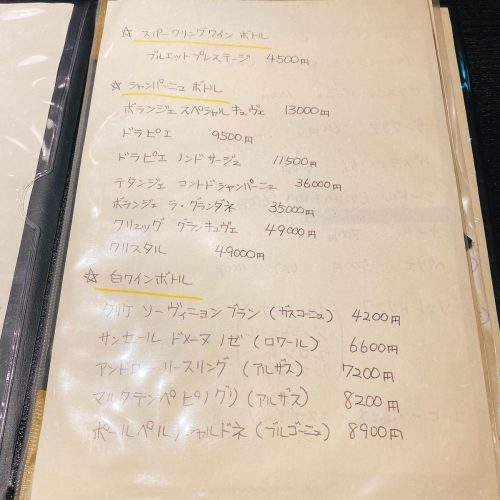 ☆ スパークリングワイン ボトル
ブルエットプレステージ 4500円
☆ シャンパーニュ ボトル
ボランジェ スペシャル キュヴェ 13000円
ドラピエ 9500円
ドラピエ ノンドサージュ 11500円
テタンジェ コントドシャンパーニュ 36000円
ボランジェ ラ・グランダネ 35000円
クリュッグ グランキュヴェ 49000円
クリスタル 49000円
☆ 白ワインボトル
タリケ ソーヴィニョンブラン (ガスコーニュ) 4200円
サンセール ドメーヌノゼ (ロワール) 6600円
アンドロー リースリング (アルザス) 7200円
マルクテンペ ピノグリ (アルザス) 8200円
ポールペルノ シャルドネ (ブルゴーニュ) 8900円